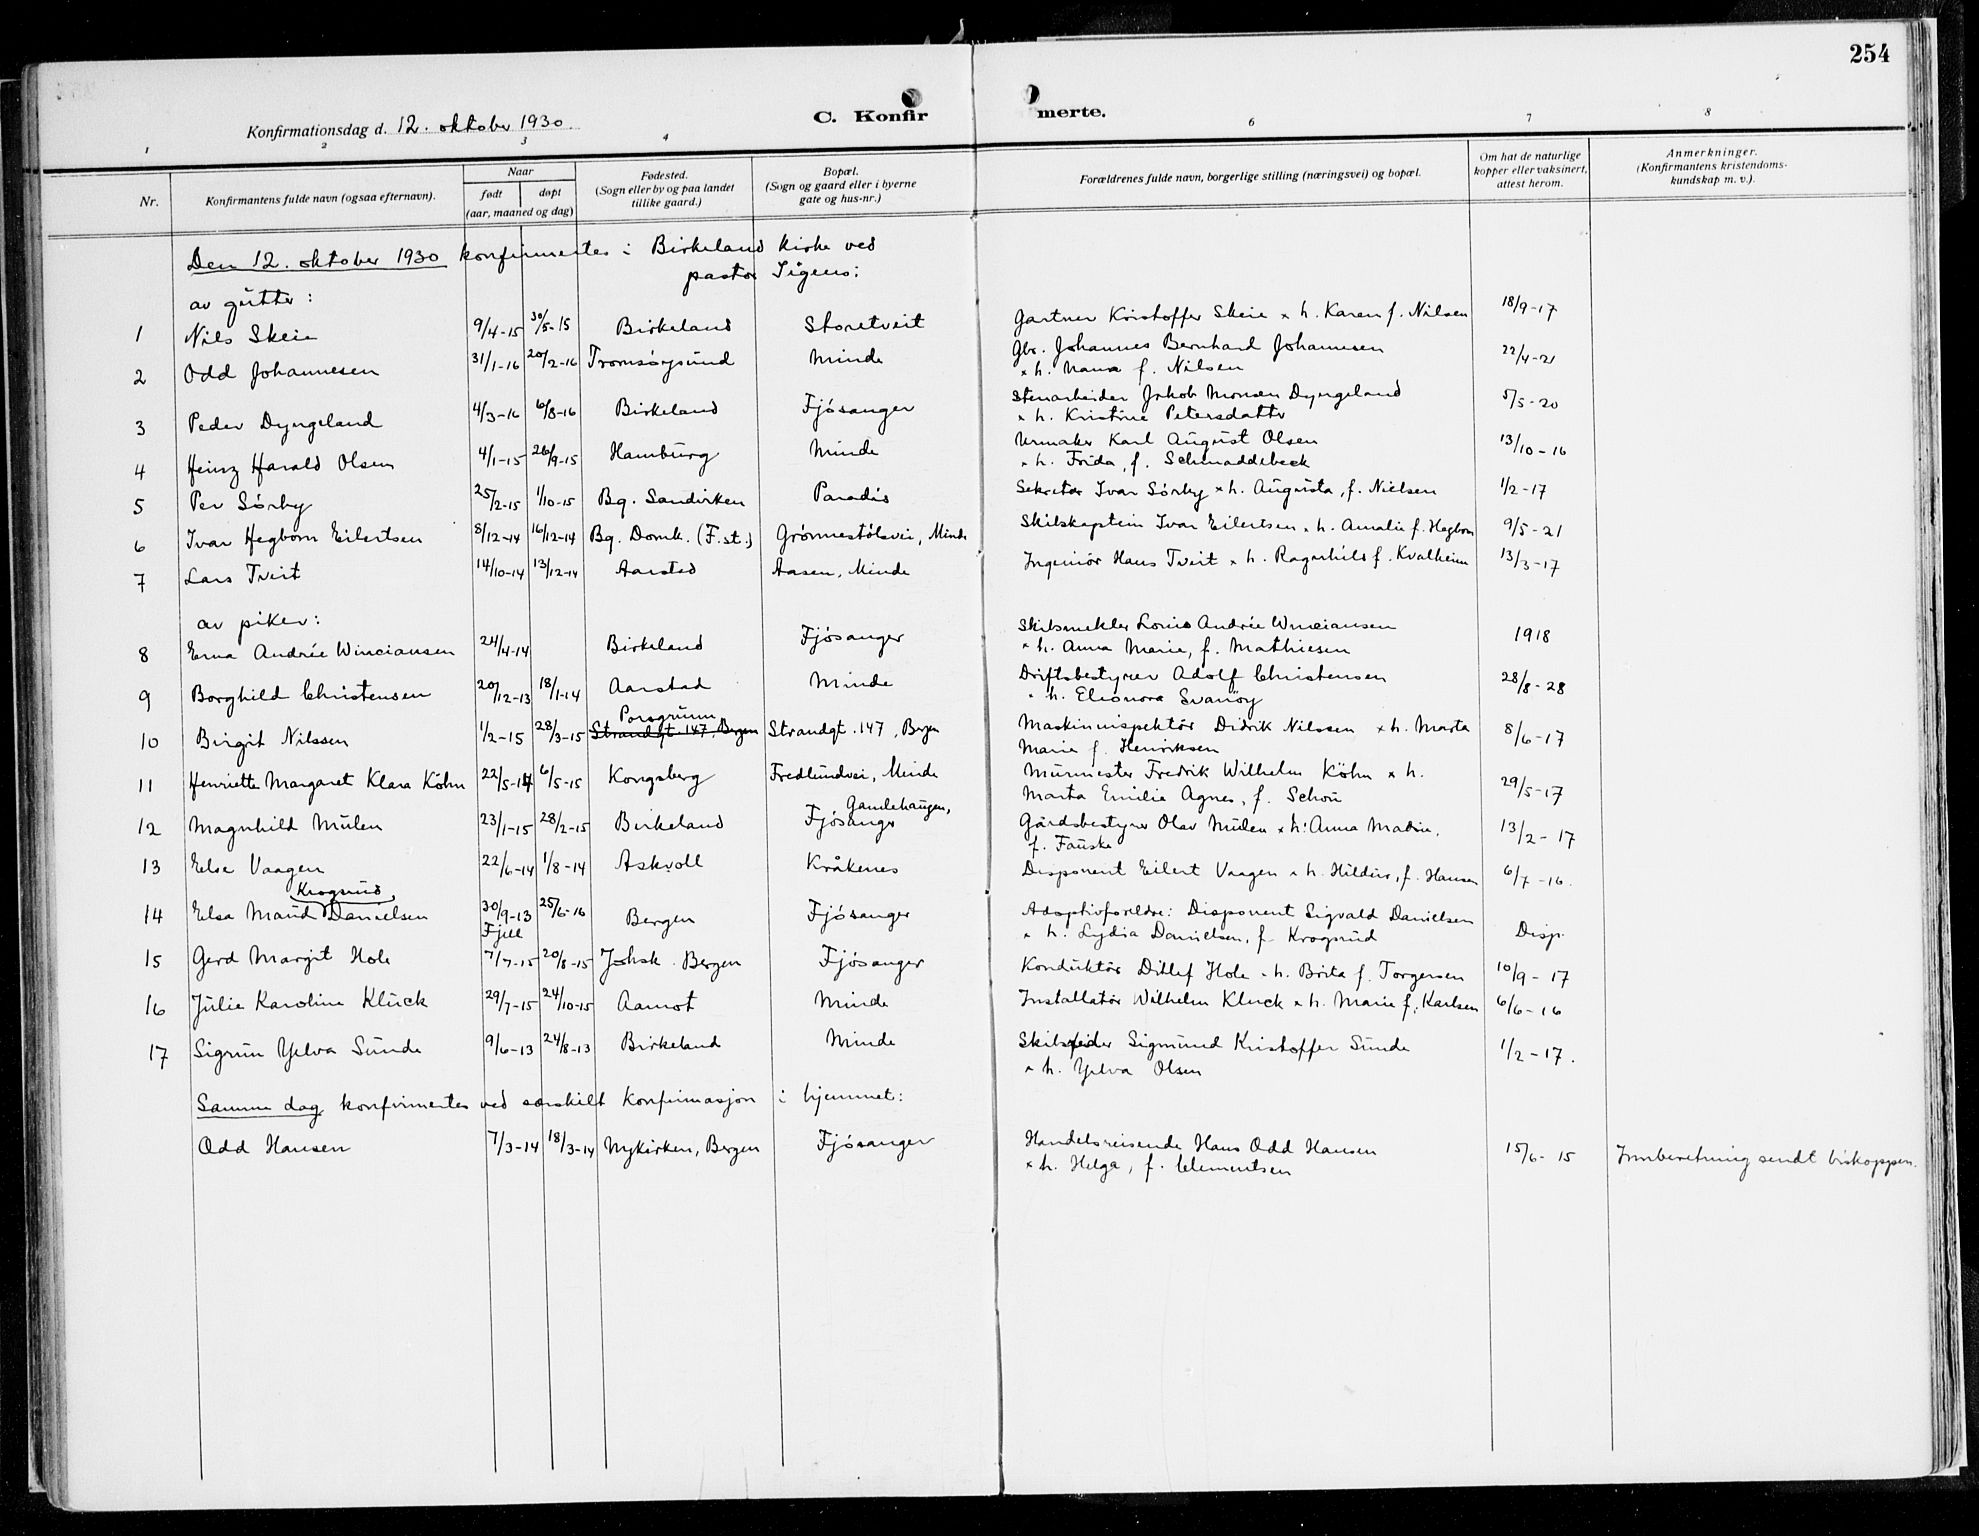 254
C. Konfirmerte.
Konfirmationsdag d. 12. oktober 1930.
1 2 3 4 6 7 8
Nr.
Konfirmantens fulde navn (ogsaa efternavn).
Naar
født døpt
(aar, maaned og dag)
Fødested.
(Sogn eller by og paa landet
tillike gaard.)
Bopæl.
(Sogn og gaard eller i byerne
gate og hus-nr.)
Forældrenes fulde navn, borgerlige stilling (næringsvei) og bopæl.
Om hat de naturlige
kopper eller vaksinert,
attest herom.
Anmerkninger.
(Konfirmantens kristendoms-
kundskap m. v.).
Den 12. oktober 1930 konfirmertes i Birkeland kirke ved
pastor Sigens:
av gutter:
1 Nils Skeie 9/4-15 30/5-15 Birkeland Storetveit Gartner Kristoffer Skeie x h. Karen f. Nilsen 18/9-17
2 Odd Johannesen 31/1-16 20/2-16 Tromsøysund Minde Gbr. Johannes Bernhard Johannesen 22/4-21
x h. Nana f. Nilsen
3 Peder Dyngeland 4/3-16 6/8-16 Birkeland Fjøsanger Stenarbeider Jakob Monsen Dyngeland 5/5-20
x h. Kristine Petersdatter
4 Heinz Harald Olsen 4/1-15 26/9-15 Hamburg Minde Urmaker Karl August Olsen 13/10-16
x h. Frida, f. Schmaddebeck
5 Per Sørby 25/2-15 1/10-15 Bg. Sandviken Paradis Sekretær Ivar Sørby x h. Augusta, f. Nielsen 1/2-17
6 Ivar Hegbom Eilertsen 8/12-14 16/12-14 Bg. Domk. (F.st.) Grønnestølsvei, Minde Skibskaptein Ivar Eilertsen x h. Amalie f. Hegbom 9/5-21
7 Lars Tveit 14/10-14 13/12-14 Aarstad Aasen, Minde Ingeniør Hans Tveit x h. Ragnhild f. Kvalheim 13/3-17
av piker:
8 Erna Andrée Winciansen 24/4-14 Birkeland Fjøsanger Skibsmekler Louis Andrée Winciansen 1918
x h. Anna Marie, f. Mathiesen
9 Borghild Christensen 20/12-13 18/1-14 Aarstad Minde Driftsbestyrer Adolf Christensen 28/8-28
x h. Eleonora Svanøy
Porsgrunn
10 Birgit Nilssen 1/2-15 28/3-15 Strandgt. 147, Bergen Strandgt. 147, Bergen Maskininspektør Didrik Nilssen x h. Marta 8/6-17
Marie f. Henriksen
11 Henriette Margaret Klara Köhn 22/5-14 6/5-15 Kongsberg Fredlundvei, Minde Murmester Fredrik Wilhelm Köhn x h. 29/5-17
Marta Emilie Agnes, f. Schou
Gamlehaugen,
12 Magnhild Mulen 23/1-15 28/2-15 Birkeland Fjøsanger Gårdsbestyrer Olav Mulen x h. Anna Madin, 13/2-17
f. Fauske
13 Else Vaagen 22/6-14 1/8-14 Askvoll Kråkenes Disponent Eilert Vaagen x h. Hildur, f. Hansen 6/7-16.
Krogsrud
14 Elsa Maud Danielsen 30/9-13 25/6-16 Bergen Fjøsanger Adoptivforeldre: Disponent Sigvald Danielsen Disp.
x h. Lydia Danielsen, f. Krogsrud
Fjell
15 Gerd Margit Hole 7/7-15 20/8-15 Johsk. Bergen Fjøsanger Konduktør Ditlef Hole x h. Brita f. Torgersen 10/9-17
16 Julie Karoline Kluck 29/7-15 24/10-15 Aamot Minde Installatør Wilhelm Kluck x h. Marie f. Karlsen 6/6-16
17 Sigrun Yelva Sunde 9/6-13 24/8-13 Birkeland Minde Skibsfører Sigmund Kristoffer Sunde 1/2-17.
x h. Yelva Olsen
Samme dag konfirmertes ved særskilt konfirmasjon i hjemmet:
Odd Hansen 7/3-14 18/3-14 Nykirken, Bergen Fjøsanger Handelsreisende Hans Odd Hansen 15/6-15 Innberetning sendt biskoppen.
x h. Helga, f. Clementsen